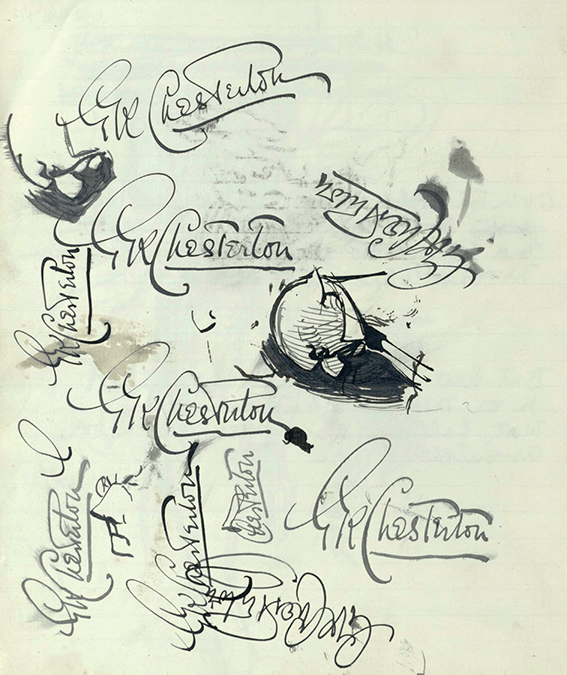 GK Chesterton
GK Chesterton
GK Chesterton
GK Chesterton
GK Chesterton
GK Chesterton
GK Chesterton
GK Chesterton
Chesterton
GK Chesterton